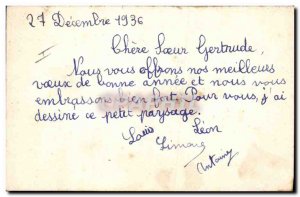 27 Décembre 1936
Chère Sœur Gertrude,
Nous vous offrons nos meilleurs
vœux de bonne année et nous vous
embrassons bien fort. Pour vous, j'ai
dessiné ce petit paysage.
Louis Léon
Simone
Antoine